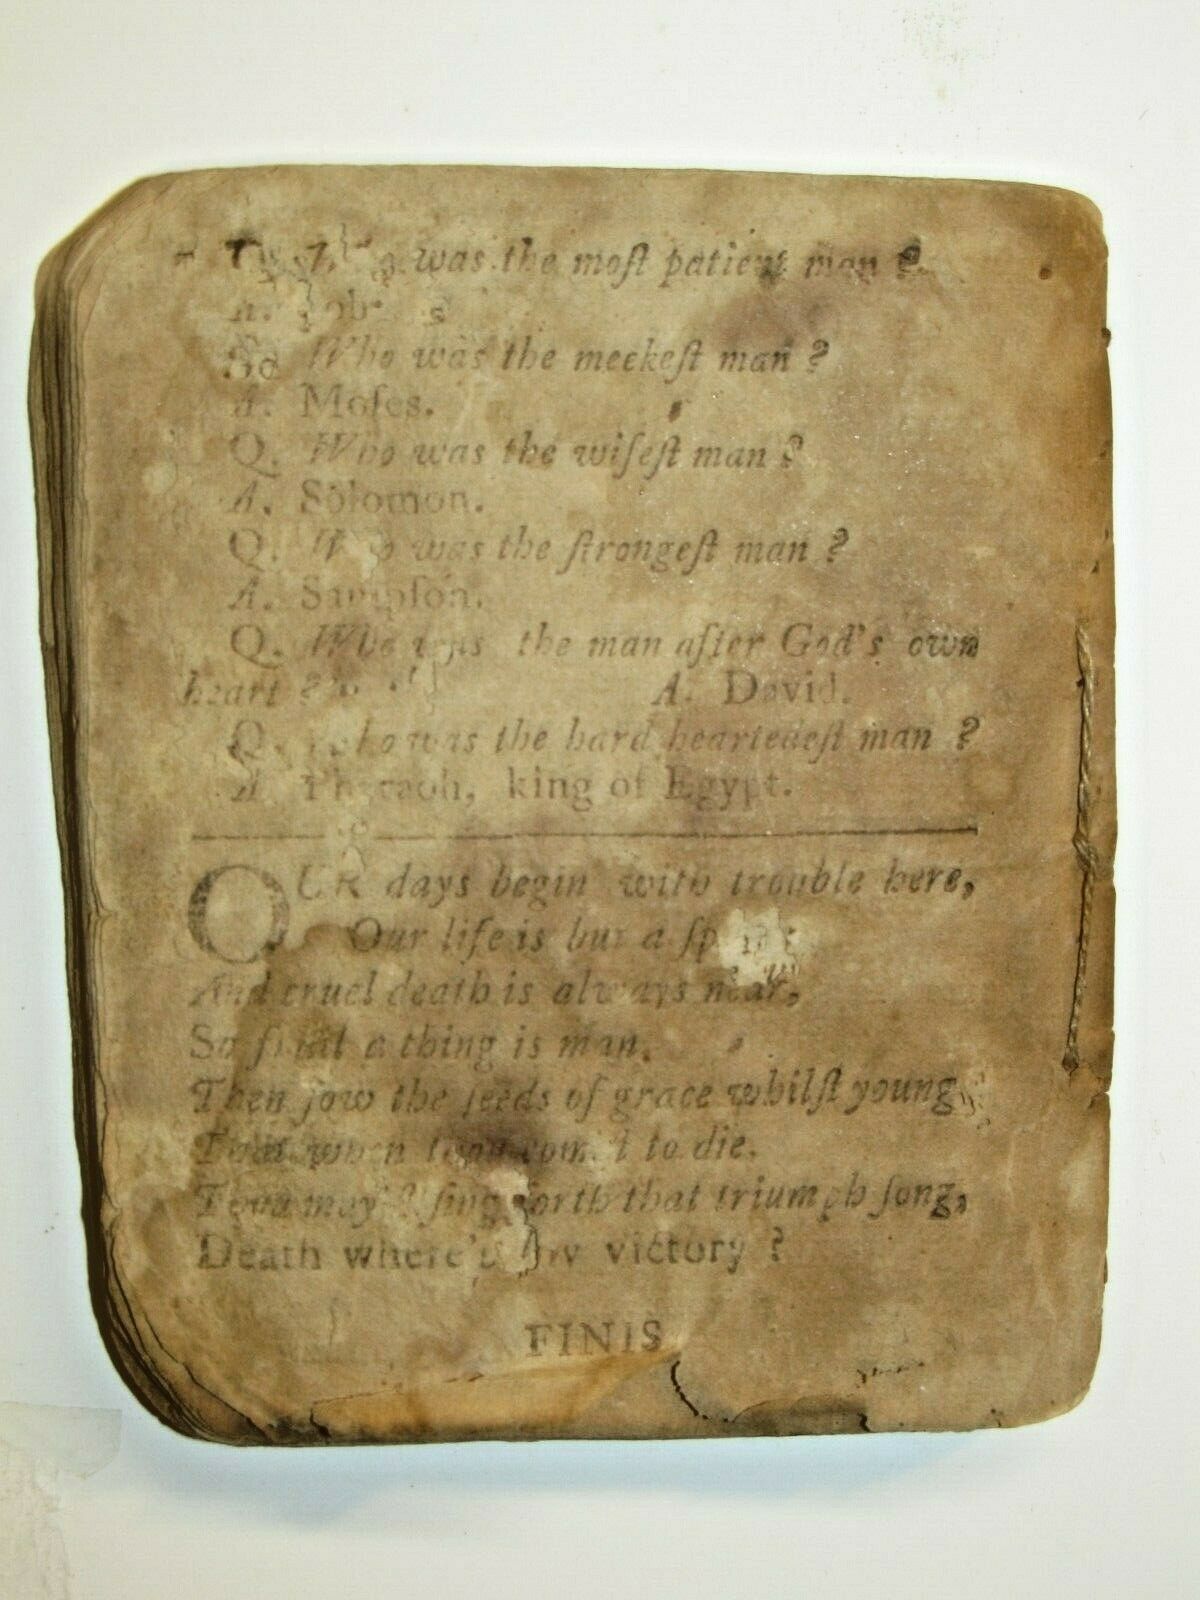 was the moſt patient man ?
A. Job.
Who was the meekeſt man ?
A. Moſes.
Q. Who was the wiſeſt man ?
A. Solomon.
Q. Who was the ſtrongeſt man ?
A. Sampſon.
Q. Who was the man after God's own
heart ? A. David.
Q. Who was the hard heartedeſt man ?
A. Pharaoh, king of Egypt.
OUR days begin with trouble here,
Our life is but a
And cruel death is always near,
So frail a thing is man.
Then ſow the ſeeds of grace whilſt young,
That when thou com'ſt to die.
Thou may'ſt ſing forth that triumph ſong,
Death where's thy victory ?
FINIS